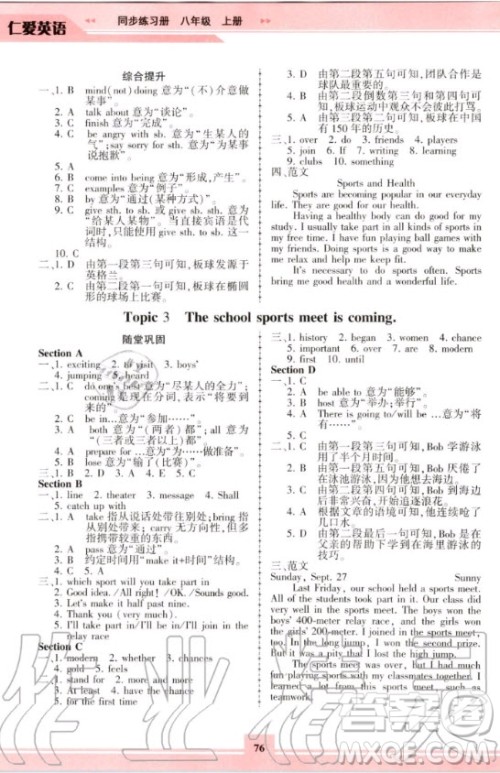 仁爱英语 同步练习册 八年级 上册
综合提升
一、1. B mind(not) doing 意为“(不)介意做
某事”。
2. A talk about 意为“谈论”。
3. C finish 意为“完成”。
4. C be angry with sb. 意为“生某人的
气”; say sorry for sth. 意为“为某事
说抱歉”。
5. A
6. B come into being 意为“形成,产生”。
7. C examples 意为“例子”。
8. A by 意为“通过(某种方式)”。
9. C give sth. to sb. 或 give sb. sth. 意为
“给某人某物”。当直接宾语是代
词时,只能使用 give sth. to sb. 这一
结构。
10. C
二、1. D 由第一段第三句可知,板球发源于
英格兰。
2. B 由第一段第四句可知,板球在椭圆
形的球场上比赛。
3. D 由第二段第五句可知,团队合作是
球队最重要的。
4. B 由第二段倒数第三句和第四句可
知,板球运动中观众不会彼此打骂。
5. A 由第二段第二句可知,板球在中国
有 150 年的历史。
三、1. over 2. do 3. friends 4. players
5. join 6. If 7. working 8. learning
9. clubs 10. something
四、范文
Sports and Health
Sports are becoming popular in our everyday
life. They are good for our health.
Having a healthy body can do good for my
study. I usually take part in all kinds of sports in
my free time. I have fun playing ball games with
my friends. Doing sports can also do good to make
me relax and help me keep fit.
It's necessary to do sports often. Sports
bring me good health and a wonderful life.
Topic 3 The school sports meet is coming.
随堂巩固
Section A
一、1. exciting 2. to visit 3. boys
4. jumping 5. heard
二、1. C do one's best 意为“尽某人的全力”;
coming 是现在分词,表示“将要到
来的”。
2. C be in… 意为“参加……”。
3. A both 意为“(两者)都”; all 意为
“(三者或三者以上)都”。
4. A prepare for …意为“为……做准备”。
5. B lose 意为“输了(比赛)”。
三、1. B 2. D 3. A 4. E 5. C
Section B
一、1. line 2. theater 3. message 4. Shall
5. catch up with
二、1. A take 指从说话处带往别处; bring 指
从别处带来; carry 无方向性,但多
指携带较重的东西。
2. A pass 意为“通过”。
3. B 约定时间用“make it+时间”结构。
4. C 5. A
三、1. which sport will you take part in
2. Good idea. /All right! /OK. /Sounds good.
3. Let's make it half past nine.
4. Thank you (very much).
5. I'll take part in/I'll be in/I'll join in the
relay race
Section C
一、1. modern 2. whether 3. does
4. gold 5. feels
二、1. stand for 2. more and more
3. At least 4. have the chance
5. have fun
三、1. history 2. began 3. women 4. took
5. important 6. over 7. are 8. winter
9. first 10. until
Section D
一、1. C
2. A be able to 意为“能够”。
3. B host 意为“举办;举行”。
4. A There is going to/will be… 意为“将
有……”。
5. C
二、1. C 由第一段第三句可知, Bob 学游泳
用了一周的时间。
2. B 由第一段第五句可知, Bob 厌倦了
在泳池游泳,因此想去海边。
3. C 由第二段第四句可知, Bob 到海边后
非常兴奋,开始追逐浪花。
4. A 根据文章的语境可知,他连续呛了
几口水。
5. D 由第二段最后一句可知, Bob 在父
亲的帮助下学到了在海里游泳的
技巧。
三、范文
Sunday, Sept. 27 Sunny
Last Friday, our school held a sports meet.
All of the students took part in it. Our class did
very well in the sports meet. We were first in the
boys' 400-meter relay race. We were first in the
girls' 200-meter race. I was in the sports meet,
too. In the long jump, I won the second prize.
But it was a pity that I lost the high jump.
The sports meet was very exciting and I had
fun playing sports with my classmates together. I
learned a lot from this sports meet, such as
teamwork.
76
作业精灵
答案圈
MXQE.COM